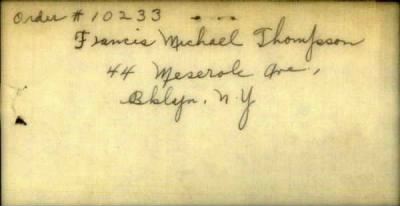 Order # 10233
Francis Michael Thompson
44 Meserole Ave.,
Bklyn. N.Y